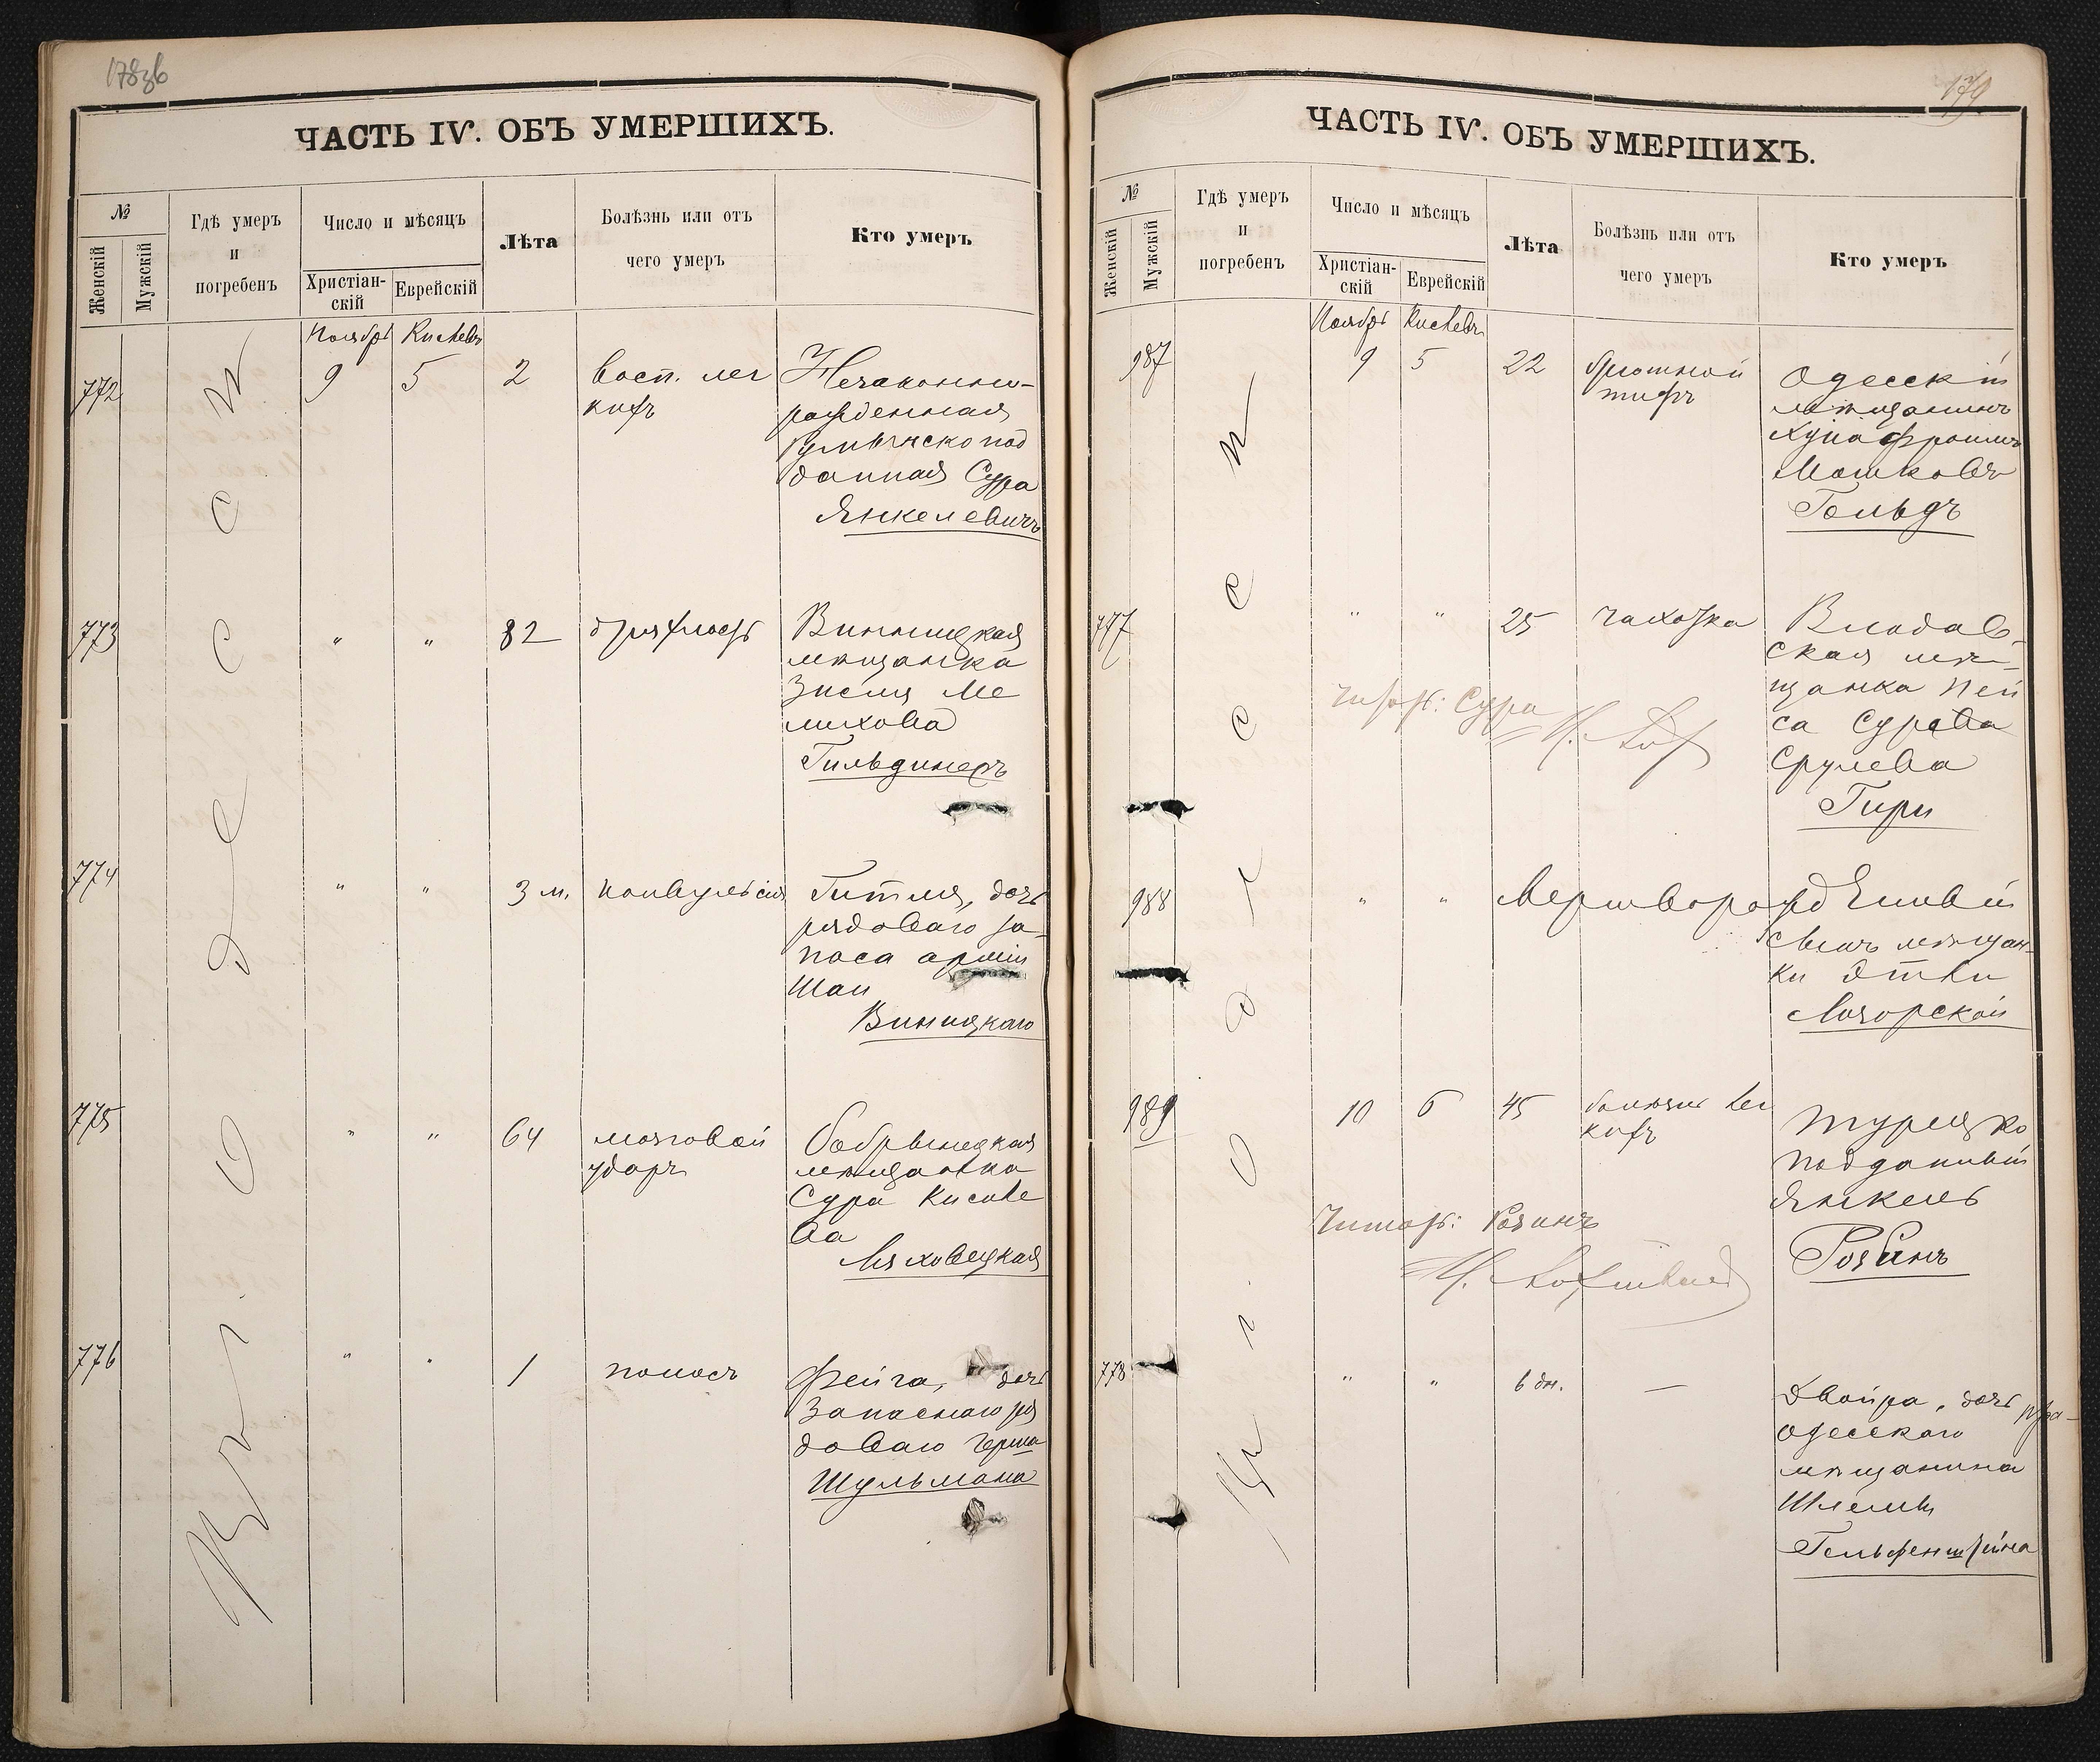 178зв
ЧАСТЬ IV. ОБЪ УМЕРШИХЪ.
№
Женскій
Мужскій
Гдѣ умеръ
и
погребенъ
Число и мѣсяцъ
Христіан-
скій
Еврейскій
Лѣта
Болѣзнь или отъ
чего умеръ
Кто умеръ
Ноябрь Кислевъ
772 9 5 2 восп. лег
кихъ
Незаконно-
рожденная
Румынско под
данная Сура
Янкелевичъ
773 " " 82 дряхлость
Винницкая
мѣщанка
Зисля Ме
лихова
Гильдинеръ
774 " " 3 м. конвульсія
Гитля, дочь
рядоваго за-
паса арміи
Шаи
Винницкаго
775 " " 64 мозговой
ударъ
Бобрынецкая
мѣщанка
Сура Кисиле
ва
Ляховецкая
776 " " 1 поносъ
Фейга, дочь
запаснаго ря
доваго Герша
Шульмана
Въ г. Одессѣ
179
ЧАСТЬ IV. ОБЪ УМЕРШИХЪ.
№
Женскій
Мужскій
Гдѣ умеръ
и
погребенъ
Число и мѣсяцъ
Христіан-
скій
Еврейскій
Лѣта
Болѣзнь или отъ
чего умеръ
Кто умеръ
Ноябрь Кислевъ
987 9 5 22 брюшной
тифъ
Одесскій
мѣщанинъ
Хуна Фроимъ
Мошковъ
Гольдъ
777 " " 25 чахотка
Влодав-
ская мѣ-
щанка Ней
са Сурева
Срулева
Гири
Читать: Сура
988 " " Мертворожденный
сынъ мѣщан-
ки Этли
Лозорской
989 10 6 45 болѣзнь лег
кихъ
Турецко
подданный
Янкель
Розинъ
Читать: Розинъ
778 " " 6 дн. —
Двойра, дочь
Одесскаго
мѣщанина
Шлемы
Гельфенштейна
Въ г. Одессѣ